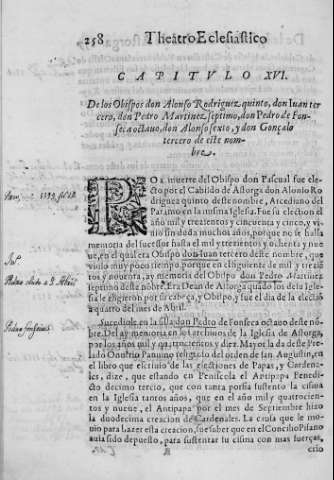 258 Theatro Eclesiastico
CAPITVLO XVI.
De los Obispos don Alonso Rodriguez quinto, don Iuan ter
cero, don Pedro Martinez septimo, don Pedro de Fon-
seca octauo, don Alonso sexto, y don Gonçalo
tercero de este nom-
bre.
POR muerte del Obispo don Pascual fue ele-
cto por el Cabildo de Astorga don Alonso Ro-
driguez quinto deste nombre, Arcediano del
Paramo en la misma Iglesia. Fue su eleccion el
año mil y trezientos y cincuenta y cinco, y vi-
uio sin duda muchos años, porque no se halla
memoria del sucessor hasta el mil y trezientos y ochenta y nue
ue, en el qual era Obispo don Iuan tercero deste nombre, que
viuio muy poco tiempo, porque en el siguiente de mil y trezien
tos y nouenta, ay memoria del Obispo don Pedro Martinez
septimo deste nombre. Era Dean de Astorga quado los dela Igle
sia le eligieron por su cabeça, y Obispo, y fue el dia de la elecciõ
a quatro del mes de Abril.
Sucediole en la silla don Pedro de Fonseca octauo deste nõ-
bre. Del ay memoria en los archiuos de la Iglesia de Astorga,
por los años mil y quatrocientos y diez. Mayor la da deste Pre-
lado Onufrio Panuino religioso del orden de san Augustin, en
el libro que escriuio de las elecciones de Papas, y Cardena-
les, dize, que estando en Peniscola el Antipapa Benedi-
cto decimo tercio, que con tanta porfia sustento la cisma en
la Iglesia tantos años, que en el año mil y quatrocien-
tos y nueue, el Antipapa por el mes de Septiembre hizo
la duodecima creacion de Cardenales. La causa que le mo-
uio para hazer esta creacion, fue saber que en el Concilio Pisano
auia sido depuesto, para sustentar su cisma con mas fuerças,
crio